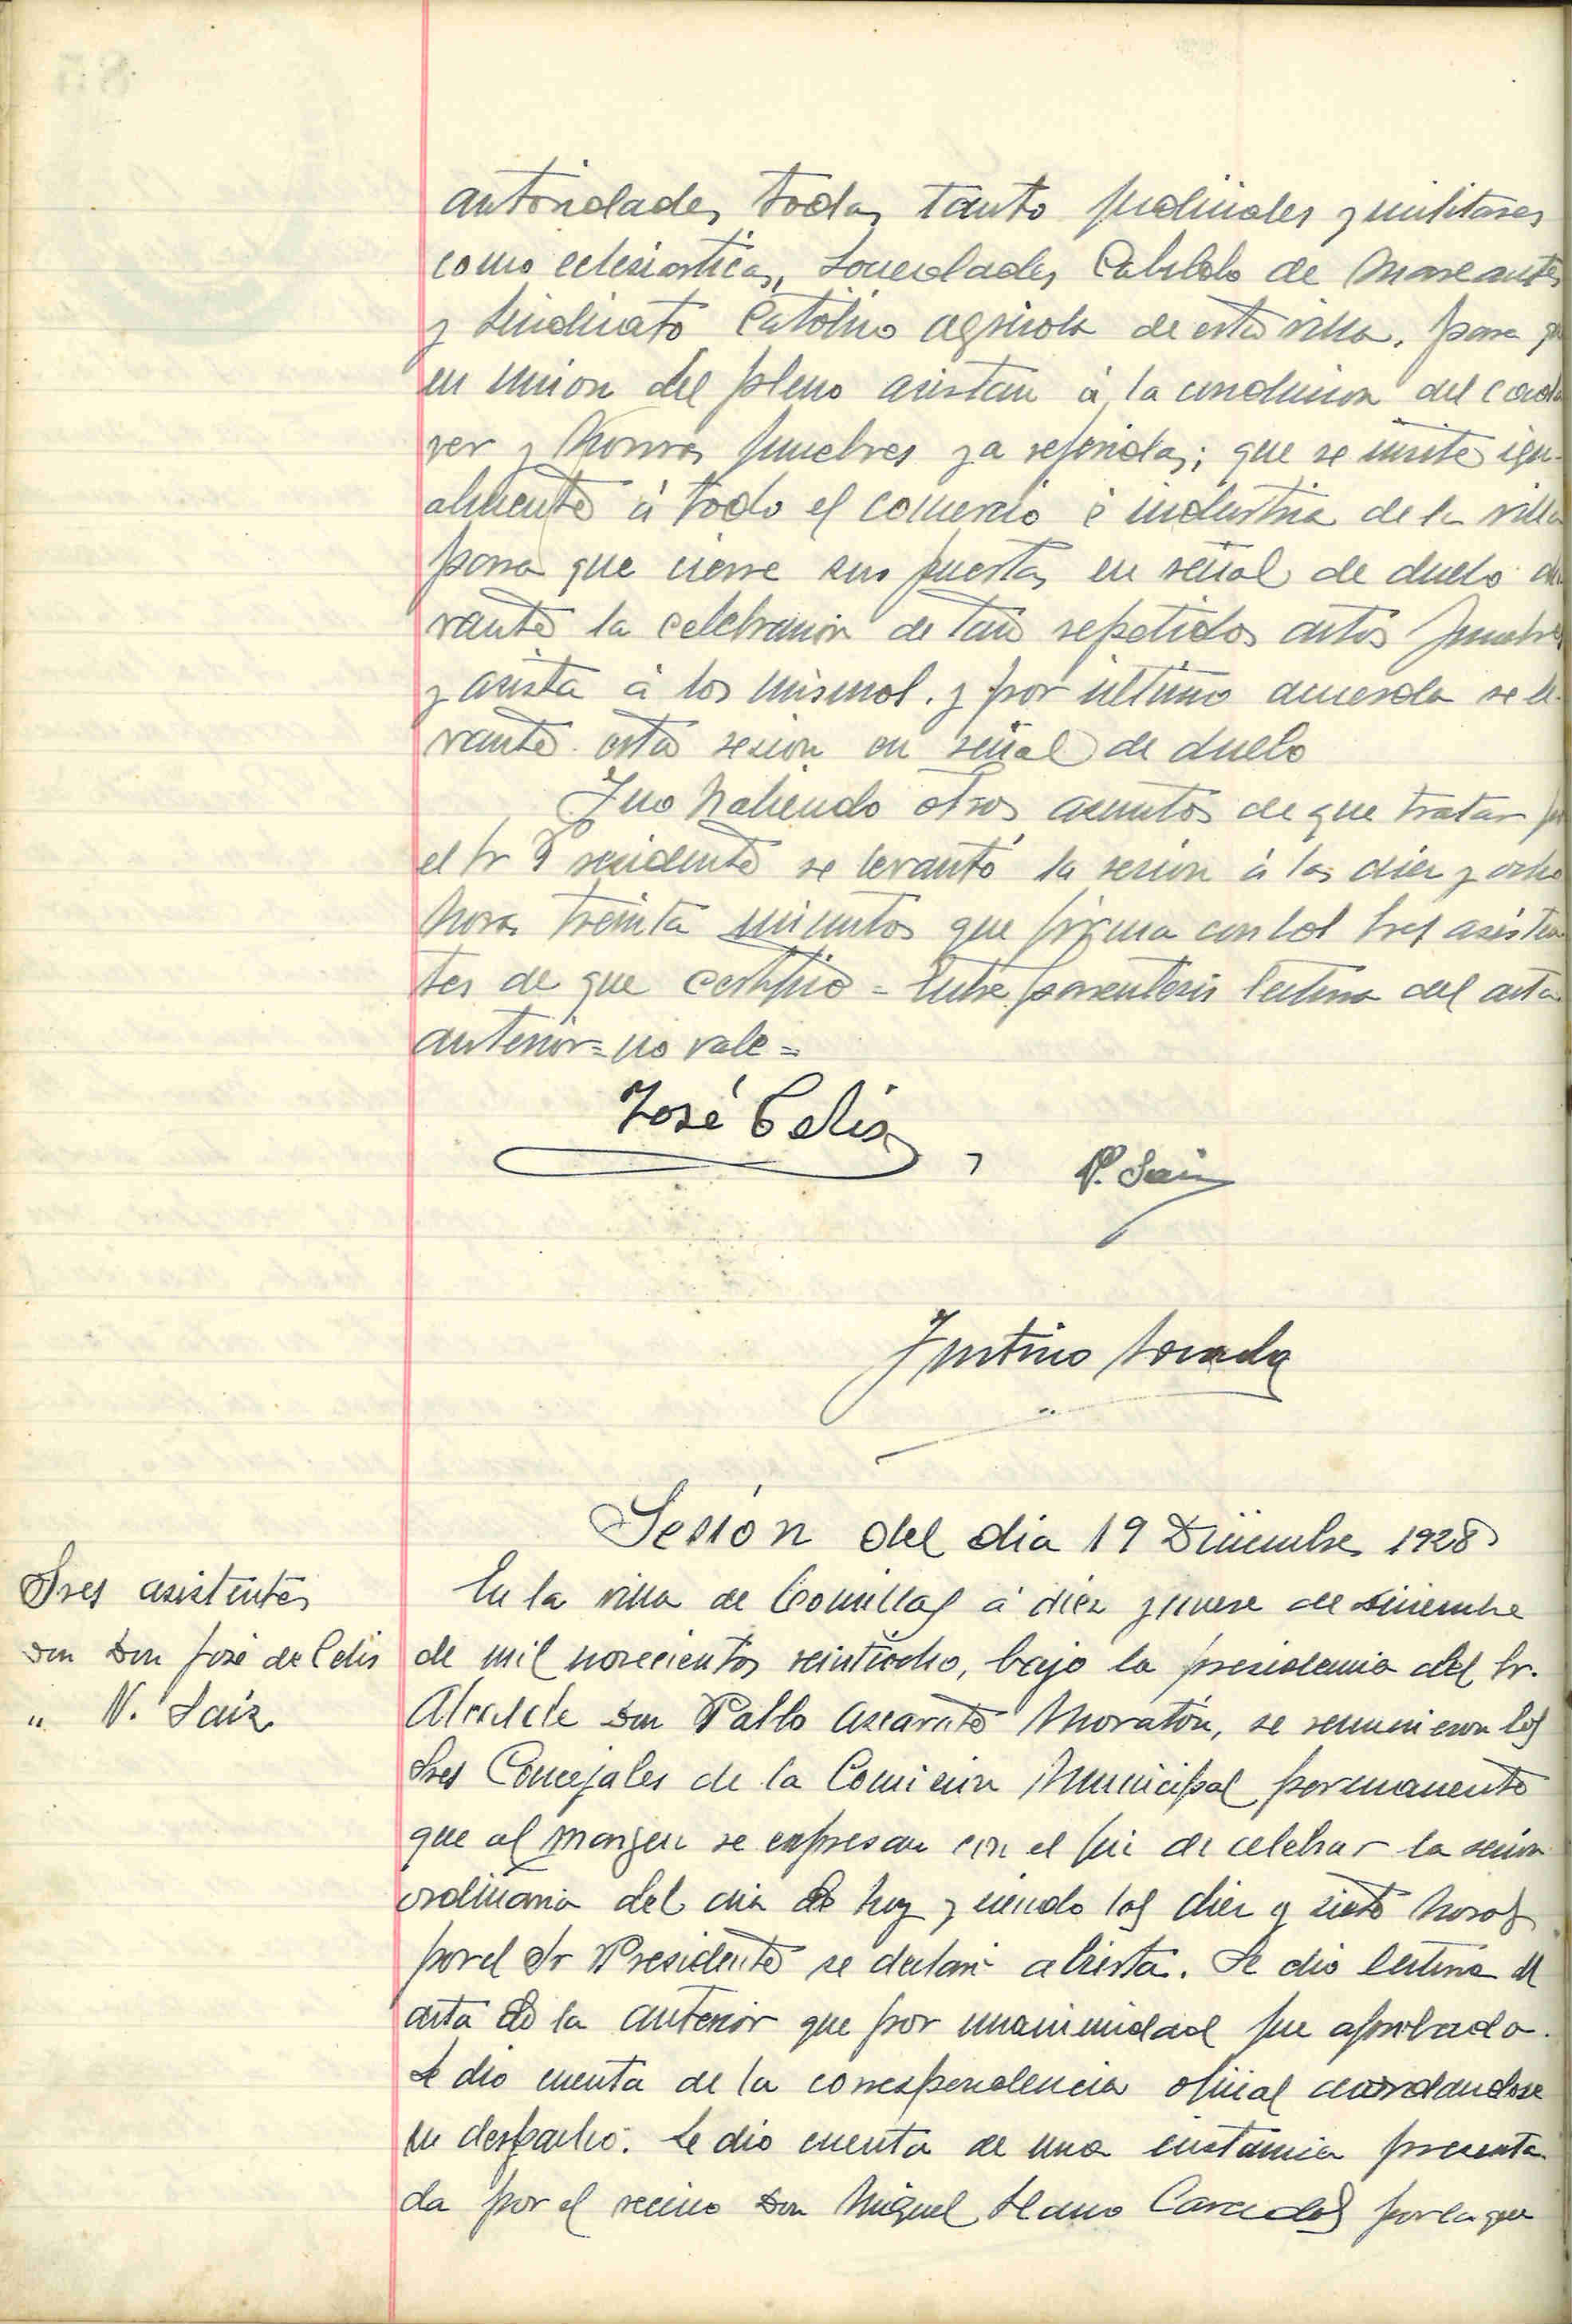 autoridades todas tanto judiciales y militares
como eclesiasticas, Sociedades Cabildo de Mareantes
y Sindicato Católico agricola de esta villa, para que
en union del pleno asistan á la conducion del cada
ver y honras funebres ya referidas; que se invite igu-
almente á todo el comercio é industria de la villa
para que cierre sus puertas en señal de duelo du
rante la celebración de tan repetidos actos funebres
y asista á los mismos. y por último acuerda se le-
vante esta sesion en señal de duelo
Y no habiendo otros asuntos de que tratar por
el Sr Presidente se levantó la sesion á las diez y ocho
horas treinta minutos que firma con los Sres asisten
tes de que certifico = Entre parentesis lectura del acta
anterior = no vale =
José Celis
V. Saiz
Justino
Sesión del dia 19 Diciembre 1928
Sres asistentes
Don Don José de Celis
" V. Saiz
En la villa de Comillas á diez y nueve de diciembre
de mil novecientos veintiocho, bajo la presidencia del Sr.
Alcalde Don Pablo Azcarate Moratón, se reunieron los
Sres Concejales de la Comision Municipal permanente
que al margen se expresan con el fin de celebrar la sesion
ordinaria del dia de hoy y siendo las diez y siete horas
por el Sr Presidente se declaró abierta. Se dio lectura del
acta de la anterior que por unanimidad fue aprobada.
Se dio cuenta de la correspondencia oficial acordandose
su despacho. Se dio cuenta de una instancia presenta
da por el vecino Don Miguel Llano por la que